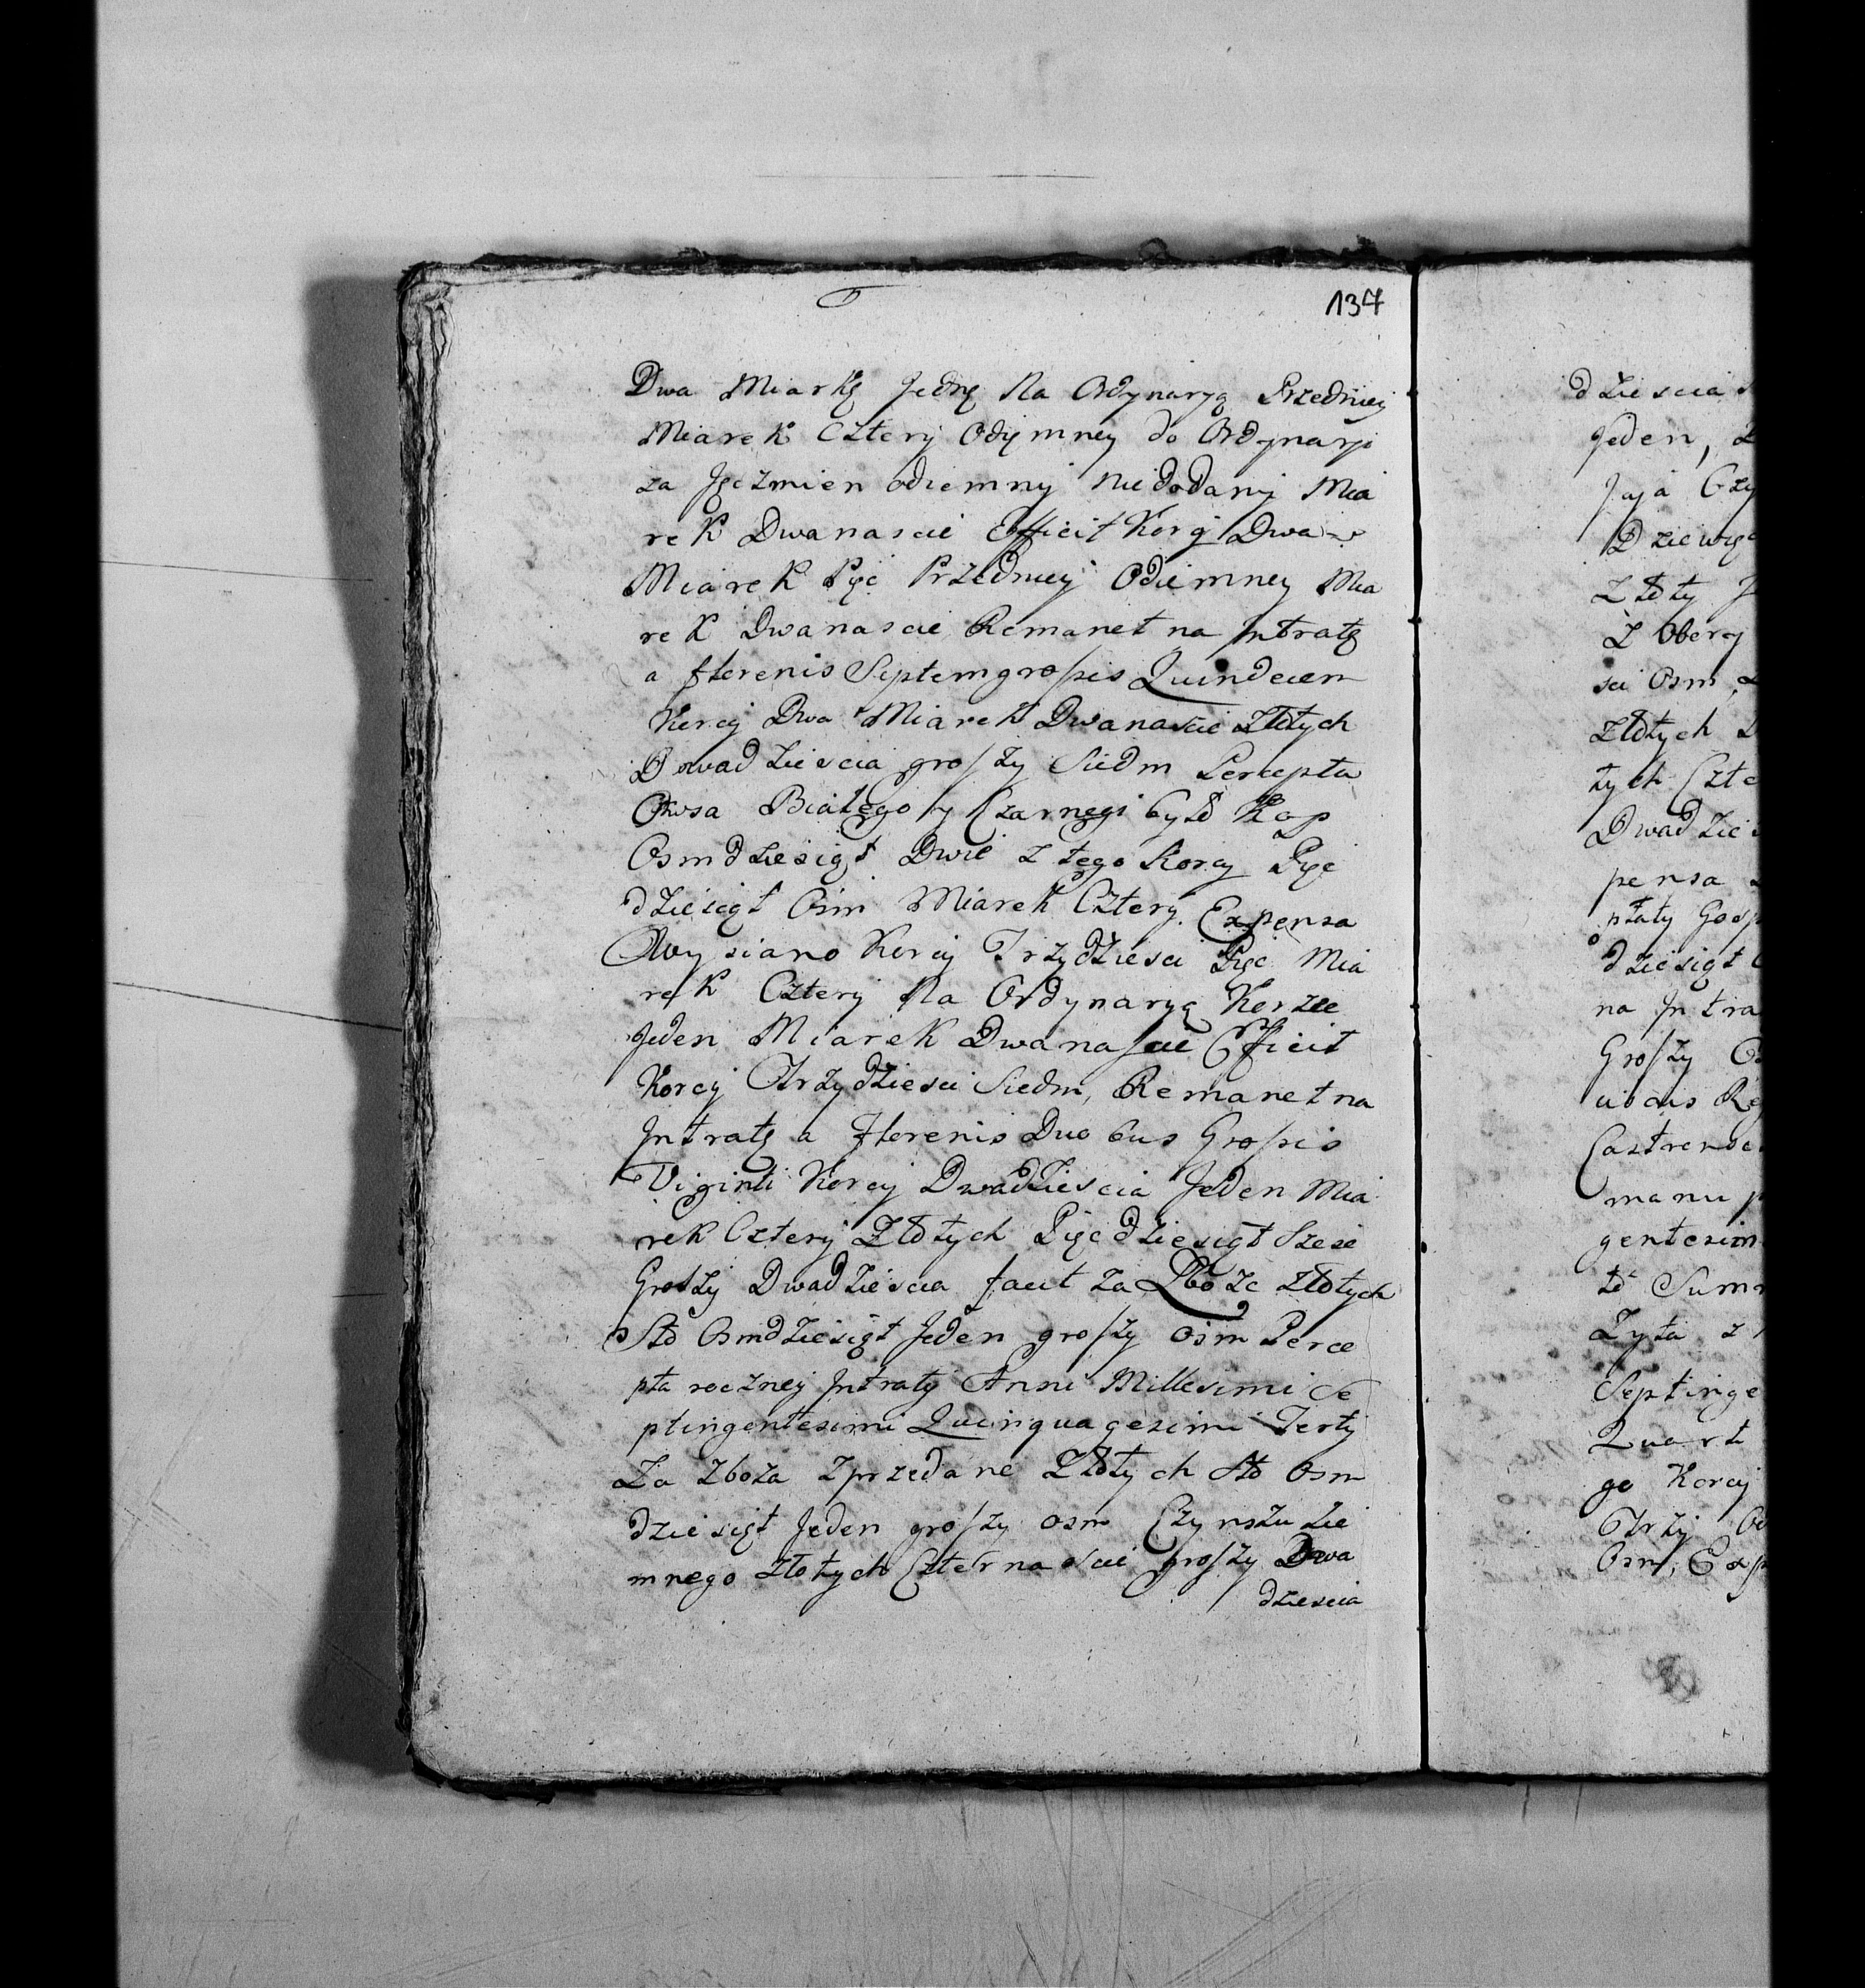 137
Dwa Miarkę Jednę Na Ordynaryą Przedniey
Miarek Cztery Odjemney do Ordynaryi
za Jęczmien odiemny niedodany Mia
rek Dwanascie Efficit Korcy Dwa
Miarek Pięc Przedniey Odiemney Mia
rek Dwanascie Remanet na Jntratę
a florenis Septem grossis Quindecim
Korcy Dwa Miarek Dwanascie Złotych
Dwadziescia groszy Siedm Percepta
Owsa Białego y Czarnego było Kop
Osmdziesiąt Dwie z tego Korcy Pięc
dziesiąt Osm Miarek Cztery. Expensa
Wysiano Korcy Trzydziesci Pięc Mia
rek Cztery Na Ordynaryą Korzec
Jeden Miarek Dwanascie Efficit
Korcy Trzydziesci Siedm, Remanet na
Jntratę a florenis Duobus Grossis
Viginti Korcy Dwadziescia Jeden Mia
rek Cztery Złotych Pięcdziesiąt Szesc
Groszy Dwadziescia facit za Zboze złotych
Sto Osmdziesiąt Jeden groszy osm Perce
pta roczney Jntraty Anni Millesimi Se
ptingentesimi Quinquagesimi Tertÿ
Za zboża zprzedane Złotych Sto Osm
dziesiąt Jeden groszy osm Czynszu zie
mnego złotych Czternascie groszy Dwa
dziescia
dziescia
Jeden,
Jaja
Dziewię
Złoty
Z Obery
sci Osm
złotych
tych Czte
Dwadzie
pensa
płaty Gosp
dziesiąt
na Jntra
Groszy
Castrense
manu
gentesim
to Sum
Zyta z
Septinge
Quart
go Korcy
Trzy
Osm, Exp